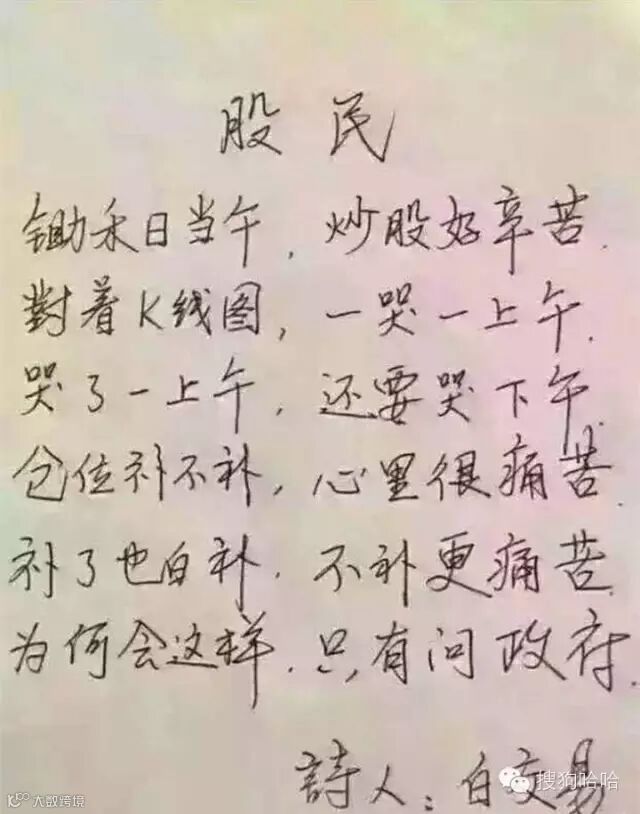 股民
锄禾日当午，炒股好辛苦.
對着K线图，一哭一上午.
哭了一上午，还要哭下午.
仓位补不补，心里很痛苦.
补了也白补.不补更痛苦.
为何会这样.只有问政府.
詩人：白交易
搜狗哈哈
K100 大数跨境